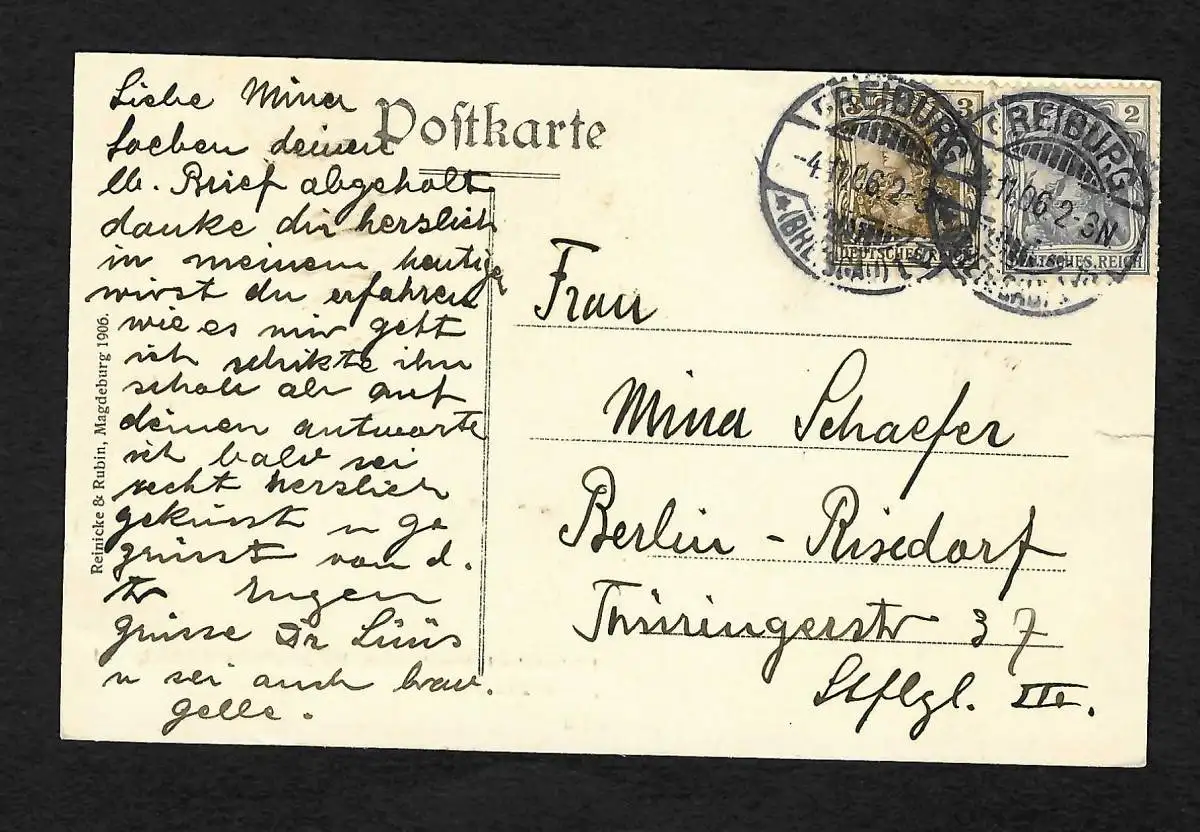 Postkarte
Liebe Mina
Soeben deinen
lb. Brief abgeholt
danke dir herzlich
in meinem heutigen
wirst du erfahren
wie es mir geht
ich schikte ihn
schon ab auf
deinen antworte
ich bald sei
recht herzlich
geküsst u ge
grüsst von d.
tr Eugen
grüsse Dr
u sei auch brav.
gelle.
Frau
Mina Schaefer
Berlin - Rixdorf
Thüringerstr 37
Stflgl. III.
Reinicke & Rubin, Magdeburg 1906.
FREIBURG
-4.11.06.2-3N
(BREISGAU)
3
DEUTSCHES REICH
FREIBURG
11.06.2-3N
2
DEUTSCHES REICH